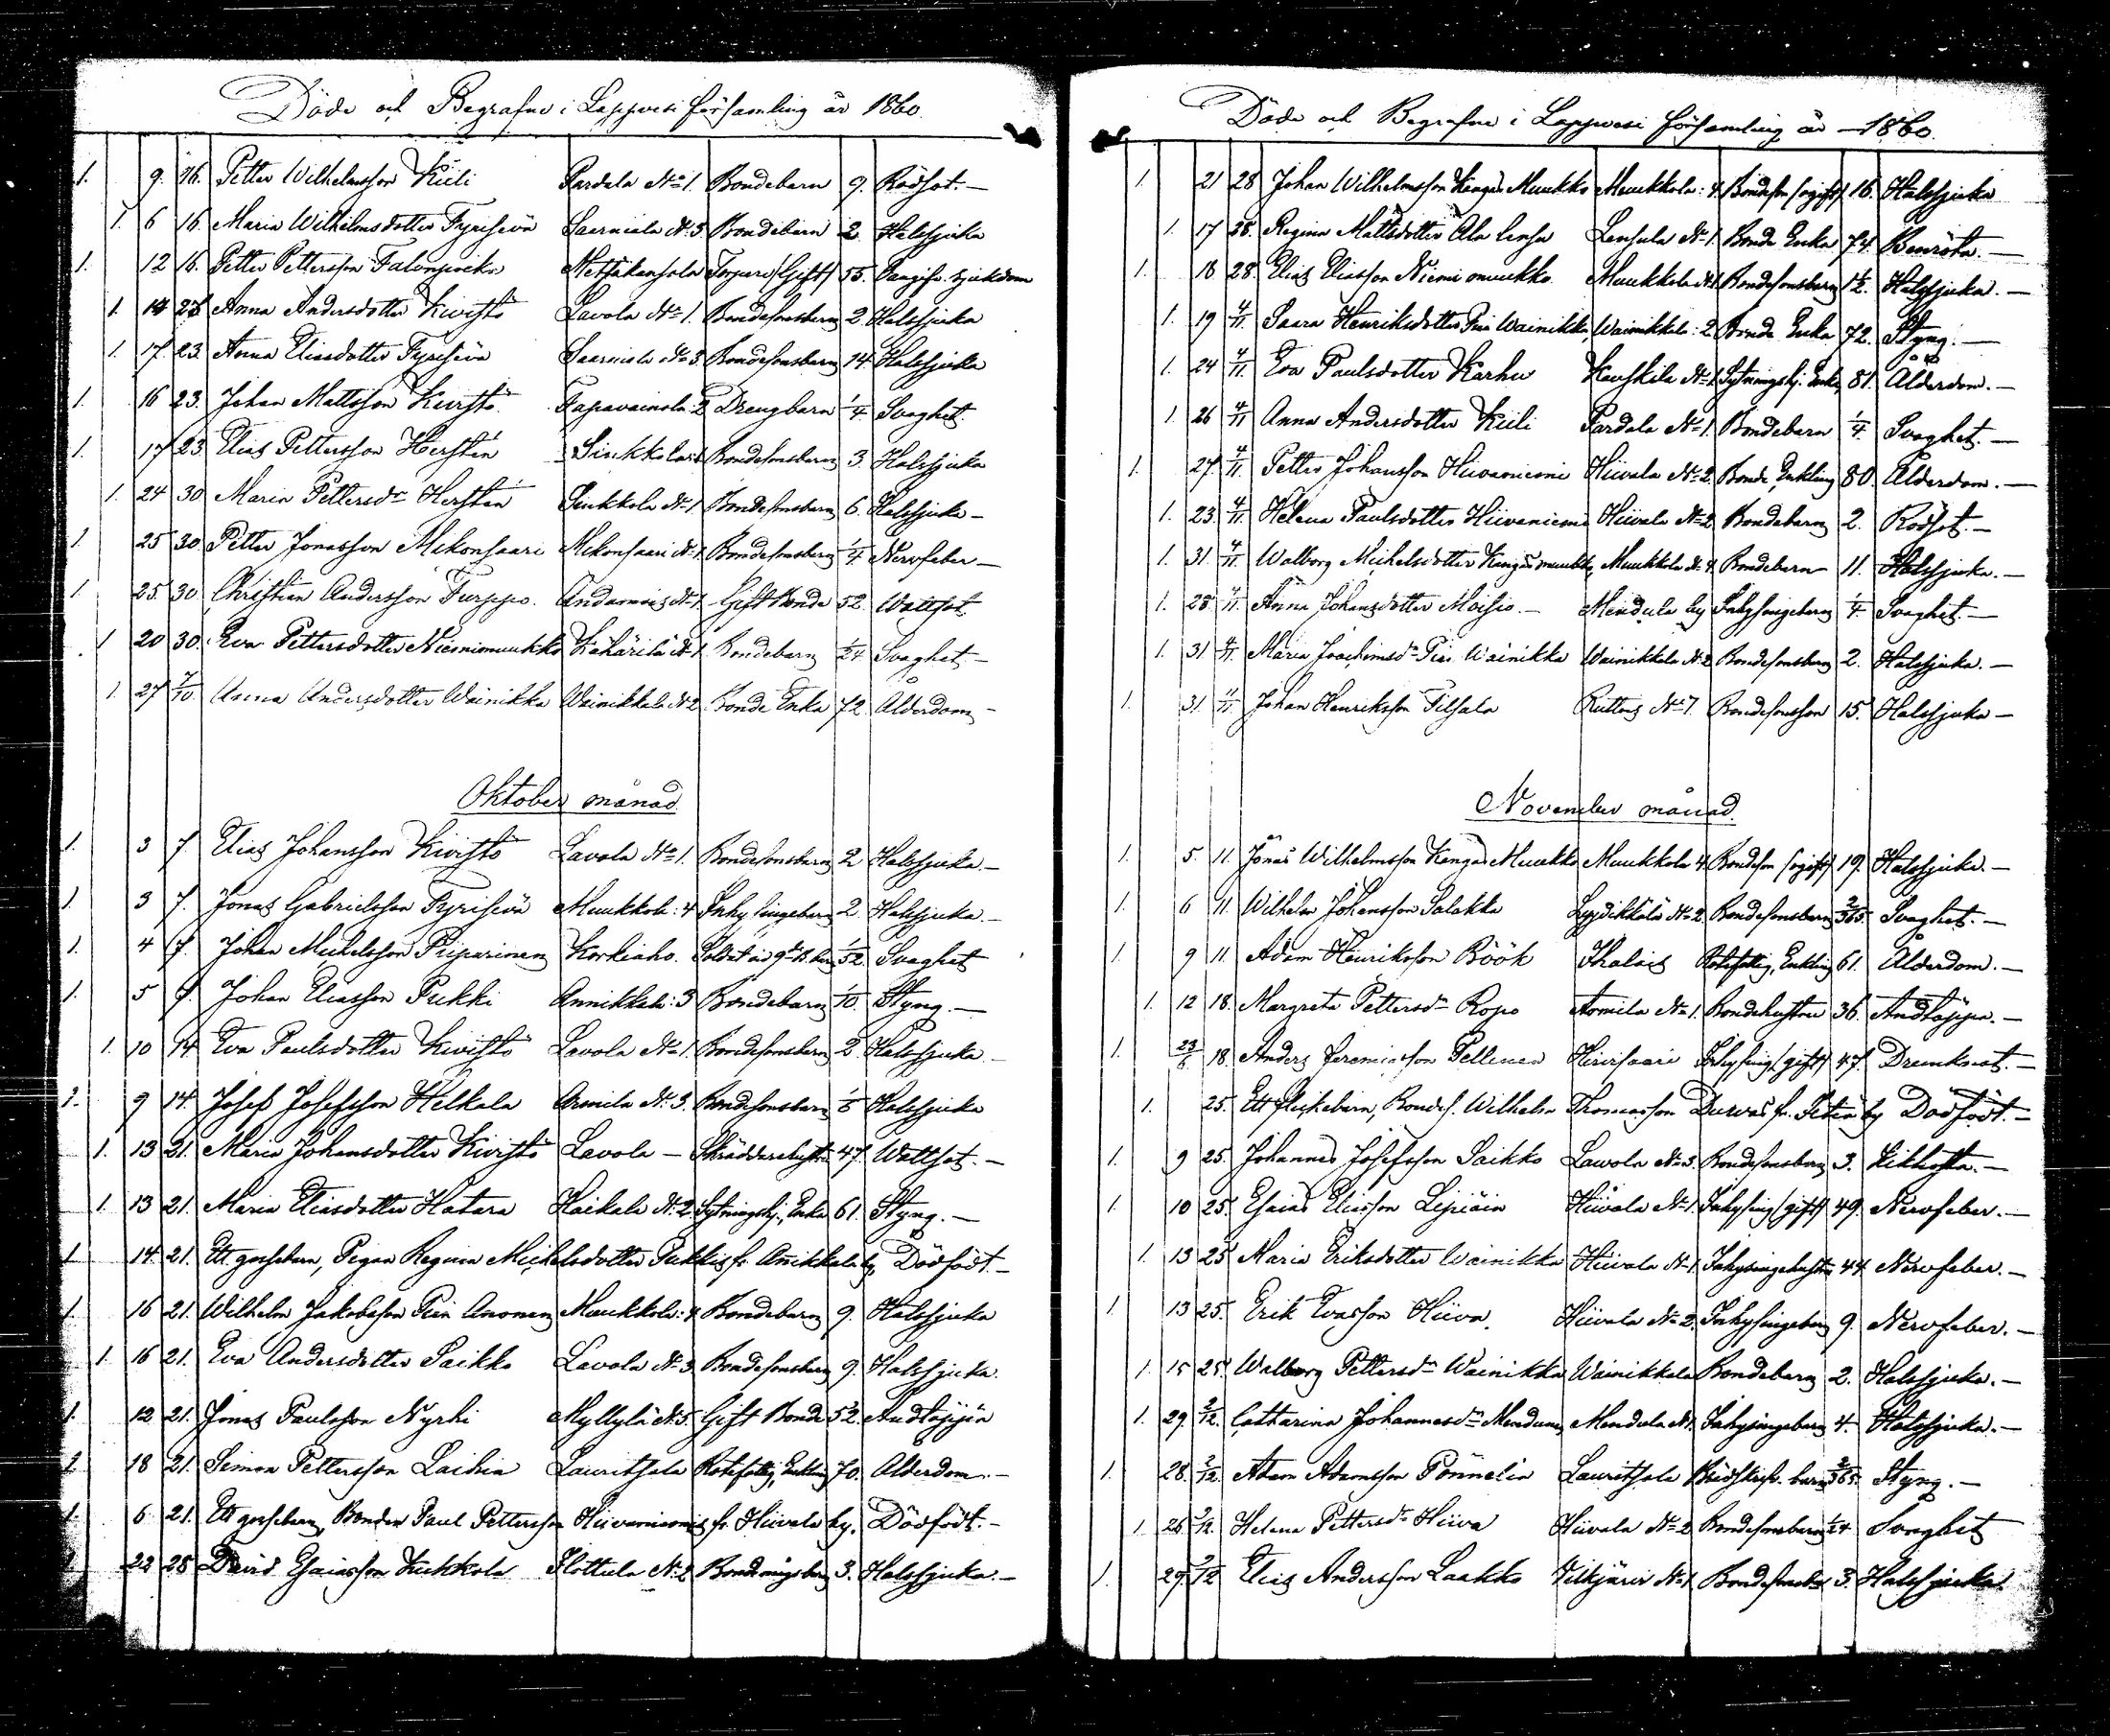 Döde och Begrafne i Lappvesi församling år 1860.
1. 9. 16. Petter Wilhelmsson Kiili Pardala No 1. Bondebarn 9. Rödsot.—
1. 6 16. Maria Wilhelmsdotter Tyrisevä No 3. Bondebarn 2 Halssjuka
1. 12 16. Petter Pettersson Metsäkansola (Gift) 55.
1. 14 23 Anna Andersdotter Kivistö Lavola No 1. Bondesonsbarn 2 Halssjuka
1. 17 23. Anna Eliasdotter Tyrisevä No 3 Bondesonsbarn 14. Halssjuka
1. 16 23. Johan Mattsson Kivistö Tapavainola: 2 Drengbarn 1/4 Svaghet.
1. 17 23. Elias Pettersson Hersten Sinkkola: 1 Bondesonsbarn 3. Halssjuka
1. 24 30 Maria Pettersdr Hersten Sinkkola No 1. Bondesonsbarn 6. Halssjuka—
1. 25 30. Petter Jonasson Mikonsaari Mikonsaari No 1. Bondesonsbarn 1/4. Nervfeber—
1. 25. 30 Christian Andersson Turppo. No 1. Gift Bonde 52. Wattsot
1 20 30. Eva Pettersdotter Niemimuukko Kähärilä No 1. Bondebarn 1/24 Svaghet.—
1. 27 7/10. Anna Andersdotter Wainikka Wainikkala No 2 Bonde Enka 72. Ålderdom.—
Oktober månad
1. 3 7. Elias Johansson Kivistö Lavola No 1. Bondesonsbarn 2 Halssjuka.—
1. 3 7. Jonas Gabrielsson Tyrisevä Muukkola: 4 Inhysingebarn 2. Halssjuka.—
1. 4 7. Johan Michelsson Piiparinen Korkiaho. 1/52. Svaghet
1. 5 7. Johan Eliasson Pukki Annikkala: 3 Bondebarn 1/10. Styng.—
1. 10 14 Eva Paulsdotter Kivistö Lavola No 1. Bondesonsbarn 2. Halssjuka.—
1. 9 14. Josef Josefsson Helkala Armila No 3. Bondesonsbarn Halssjuka
1. 13 21. Maria Johansdotter Kivistö Lavola — Skräddarehustru 47. Wattsot.—
1. 13 21. Maria Eliasdotter Hatara Haikala No 2 Sytningshj. Enka 61. Styng.—
1. 14. 21. Ett gossebarn, Pigan Regina Michelsdotter Pukkis fr. Annikkala by, Dödfödt.—
1. 16 21. Wilhelm Jakobsson Pien Anonen Muukkola: 4 Bondebarn 9. Halssjuka
1. 16 21. Eva Andersdotter Saikko Lavola No 3. Bondesonsbarn 9. Halssjuka.
1. 12 21. Jonas Paulsson Nyrhi Myllylä No 5. Gift Bonde 52. Andtäppa
1 18 21. Simon Pettersson Laihia Lauritsala Rotefattig, Enkling 70. Ålderdom.—
1. 6 21. Ett gossebarn, Bonden Paul Pettersson Hiivaniemis fr. Hiivala by. Dödfödt.—
1. 22 28 David Esaiasson Kukkola Ilottula No 2 3. Halssjuka.—
Döde och Begrafne i Lappvesi församling år — 1860.
1. 21 28 Johan Wilhelmsson Kangas Muukko Muukkola: 4. Bondeson (ogift) 16. Halssjuka
1. 17 28. Regina Mattsdotter Ala Lensu Lensula No 1. Bonde Enka 74. Benröta.—
1. 18 28. Elias Eliasson Niemi muukko Muukkola No 1. Bondesonsbarn 1 1/2. Halssjuka.—
1. 19 4/11. Saara Henriksdotter Pien Wainikka Wainikkala: 2 Bonde Enka 72. Styng.—
1. 24 4/11. Eva Paulsdotter Karhu Kauskila No 1. Sytningshj. Enka, 81. Ålderdom.—
1. 26 4/11 Anna Andersdotter Kiili Pardala No 1. Bondebarn 1/4. Svaghet.—
1. 27. 4/11. Petter Johansson Hiivaniemi Hiivala No 2. Bonde, Enkling 80. Ålderdom.—
1. 23. 4/11. Helena Paulsdotter Hiivaniemi Hiivala No 2 Bondebarn 2. Rödsot.—
1. 31. 4/11. Walborg Michelsdotter Kangasmuukko, Muukkola No 4. Bondebarn 11. Halssjuka.—
1. 28. 4/11. Anna Johansdotter Moisio.— Mendula by Inhysingebarn 1/4. Svaghet.—
1. 31 4/11. Maria Joachimsdr Pien Wainikka Wainikkala No 2 Bondesonsbarn 2. Halssjuka.—
1. 31. 4/11 Johan Henriksson Tilsala Ruttons No 7. Bondesonsson 15. Halssjuka—
November månad.
1. 5. 11. Jonas Wilhelmsson Kangas Muukko Muukkola 4. Bondeson (ogift) 19. Halssjuka.—
1. 6 11. Wilhelm Johansson Salakka Lyydikkälä No 2. Bondesonsbarn 2/365. Svaghet.—
1. 9 11. Adam Henriksson Böök Ihalais Rotefattig, Enkling 61. Ålderdom.—
1. 12 18. Margreta Pettersdr Ropo Armila No 1. Bondehustru 36. Andtäppa.—
1. 23/8 18. Anders Jeremiasson Pellinen Hirvisaari Inhysing (gift) 47. Drunknat.—
1. 25. Ett flickebarn, Bondes. Wilhelm Thomasson fr. by Dödfödt.—
1. 9 25. Johannes Josefsson Saikko Lawola No 3. Bondesonsbarn 3. Kikhosta.—
1. 10 25. Esaias Eliasson Lipiäin Hiivala No 1. Inhysing (gift) 49. Nervfeber.—
1. 13 25 Maria Eriksdotter Wainikka Hiivala No 1 Inhysingehustru 44 Nervfeber.—
1. 13 25. Erik Evasson Hiiva. Hiivala No 2. Inhysingebarn 9. Nervfeber.—
1. 15 25. Walborg Pettersdr Wainikka Wainikkala Bondebarn 2. Halssjuka.—
1. 29. 2/12. Catharina Johannesdr Mendunen Mendula No 1. Inhysingebarn 4. Halssjuka.—
1. 28. 2/12. Adam Adamsson Pönnelin Lauritsala barn 2/365. Styng.—
1. 26 2/12. Helena Pettersdr Hiiva Hiivala No 2 Bondesonsbarn 1/24 Svaghet
1. 29. 2/12 Elias Andersson Laakko Vilkjärvi No 1 3. Halssjuka.